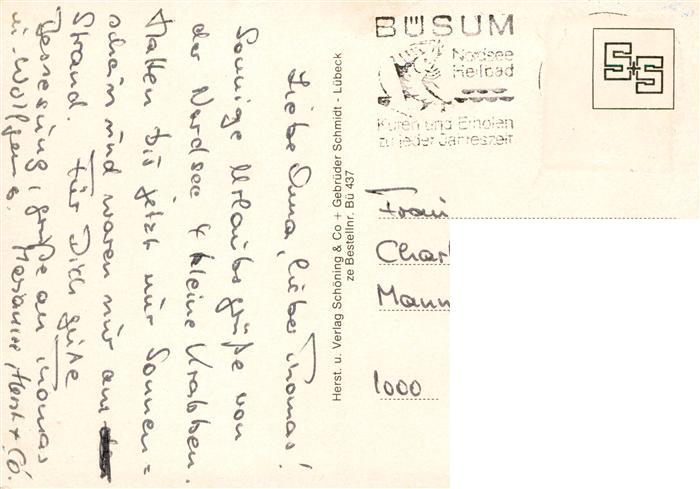 BÜSUM
Nordsee
Heilbad
Kuren und Erholen
zu jeder Jahreszeit
S+S
Liebe Oma, lieber Thomas!
Sonnige Urlaubsgrüße von
der Nordsee + kleine Krabben.
Hatten bis jetzt nur Sonnen=
schein und waren nur am
Strand. Für Dich gute
Besserung, grüße an Thomas
u. Wolfgang.
Herst. u. Verlag Schöning & Co + Gebrüder Schmidt - Lübeck
ze Bestellnr. Bü 437
Frau
Charl
Mann
1000